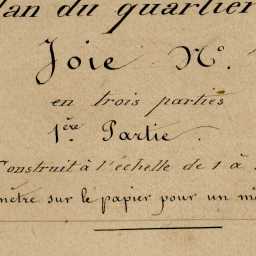 lan du quartier
Joie N.°
en trois parties
1.ère Partie.
Construit à l'échelle de 1 à
mètre sur le papier pour un m